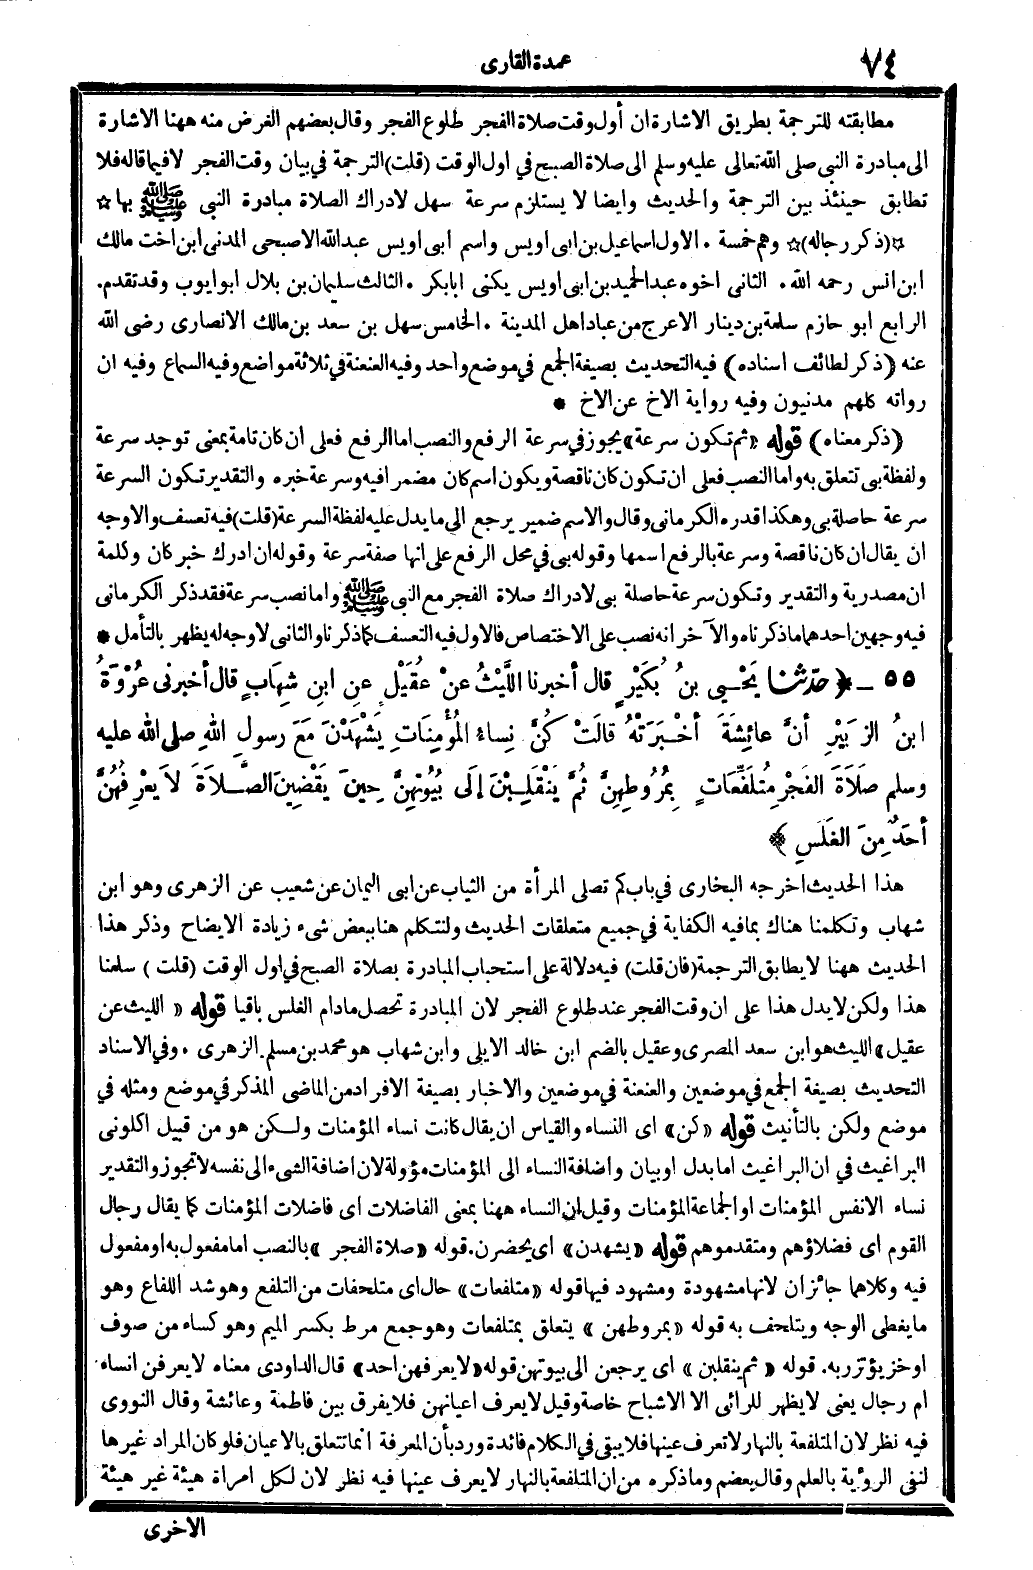 ٧٤
عمدة القارى
مطابقته للترجمة بطريق الاشارة ان أول وقت صلاة الفجر طلوع الفجر وقال بعضهم الغرض منه ههنا الاشارة
الى مبادرة النبي صلى الله تعالى عليه وسلم الى صلاة الصبح في اول الوقت (قلت) الترجمة في بيان وقت الفجر لا فيما قاله فلا
تطابق حينئذ بين الترجمة والحديث وايضا لا يستلزم سرعة سهل لادراك الصلاة مبادرة النبي ﷺ بها ☆
☆(ذكر رجاله)☆ وهم خمسة . الاول اسماعيل بن ابى اويس واسم ابى اويس عبدالله الاصبحى المدنى ابن اخت مالك
ابن انس رحمه الله. الثانى اخوه عبدالحميد بن ابى اويس يكنى ابابكر . الثالث سليمان بن بلال ابو ايوب وقد تقدم.
الرابع ابو حازم سلمة بن دينار الاعرج من عباد اهل المدينة . الخامس سهل بن سعد بن مالك الانصارى رضى الله
عنه (ذكر لطائف اسناده) فيه التحديث بصيغة الجمع في موضع واحد وفيه العنعنة في ثلاثة مواضع وفيه السماع وفيه ان
رواته كلهم مدنيون وفيه رواية الاخ عن الاخ *
(ذكر معناه) قوله «ثم تكون سرعة» يجوز في سرعة الرفع والنصب اما الرفع فعلى ان كان تامة بمعنى توجد سرعة
ولفظة بى تتعلق به واما النصب فعلى ان تكون كان ناقصة ويكون اسم كان مضمرا فيه وسرعة خبره والتقدير تكون السرعة
سرعة حاصلة بى وهكذا قدره الكرمانى وقال والاسم ضمير يرجع الى ما يدل عليه لفظة السرعة (قلت) فيه تعسف والاوجه
ان يقال ان كان ناقصة وسرعة بالرفع اسمها وقوله بى في محل الرفع على انها صفة سرعة وقوله ان ادرك خبر كان وكلمة
ان مصدرية والتقدير وتكون سرعة حاصلة بى لادراك صلاة الفجر مع النبى ﷺ واما نصب سرعة فقد ذكر الكرمانى
فيه وجهين احدهما ما ذكرناه والآخر انه نصب على الاختصاص فالاول فيه التعسف كما ذكرنا والثانى لا وجه له يظهر بالتأمل *
٥٥ ـ ﴿ حدّثنا يَحْيى بنُ بُكَيْرٍ قال أخبرنا اللَّيْثُ عنْ عُقَيْلٍ عنِ ابنِ شِهَابٍ قال أخبرنى عُرْوَةُ
ابنُ الزُّبَيْرِ أنَّ عائِشَةَ أخْبَرَتْهُ قالَتْ كُنَّ نِساءُ المُؤْمِنَاتِ يَشْهَدْنَ مَعَ رسولِ اللهِ صلى الله عليه
وسلم صَلاَةَ الفَجْرِ مُتَلَفِّعَاتٍ بِمُرُوطِهِنَّ ثُمَّ يَنْقَلِبْنَ إلَى بُيُوتِهِنَّ حِينَ يَقْضِينَ الصَّلاَةَ لاَ يَعْرِفُهُنَّ
أحَدٌ مِنَ الغَلَسِ ﴾
هذا الحديث اخرجه البخارى في باب كم تصلى المرأة من الثياب عن ابى اليمان عن شعيب عن الزهرى وهو ابن
شهاب وتكلمنا هناك بما فيه الكفاية في جميع متعلقات الحديث ولنتكلم هنا ببعض شىء زيادة الايضاح وذكر هذا
الحديث ههنا لا يطابق الترجمة (فان قلت) فيه دلالة على استحباب المبادرة بصلاة الصبح في اول الوقت (قلت) سلمنا
هذا ولكن لا يدل هذا على ان وقت الفجر عند طلوع الفجر لان المبادرة تحصل مادام الغلس باقيا قوله « الليث عن
عقيل » الليث هو ابن سعد المصرى وعقيل بالضم ابن خالد الايلى وابن شهاب هو محمد بن مسلم الزهرى . وفي الاسناد
التحديث بصيغة الجمع في موضعين والعنعنة في موضعين والاخبار بصيغة الافراد من الماضى المذكر في موضع ومثله في
موضع ولكن بالتأنيث قوله «كن» اى النساء والقياس ان يقال كانت نساء المؤمنات ولكن هو من قبيل اكلونى
البراغيث في ان البراغيث اما بدل او بيان واضافة النساء الى المؤمنات مؤولة لان اضافة الشىء الى نفسه لا تجوز والتقدير
نساء الانفس المؤمنات او الجماعة المؤمنات وقيل ان النساء ههنا بمعنى الفاضلات اى فاضلات المؤمنات كما يقال رجال
القوم اى فضلاؤهم ومتقدموهم قوله «يشهدن» اى يحضرن. قوله «صلاة الفجر» بالنصب اما مفعول به او مفعول
فيه وكلاهما جائزان لانها مشهودة ومشهود فيها قوله «متلفعات» حال اى متلحفات من التلفع وهو شد اللفاع وهو
ما يغطى الوجه ويتلحف به قوله «بمروطهن» يتعلق بمتلفعات وهو جمع مرط بكسر الميم وهو كساء من صوف
او خز يؤتزر به. قوله « ثم ينقلبن » اى يرجعن الى بيوتهن قوله «لا يعرفهن احد» قال الداودى معناه لا يعرفن انساء
ام رجال يعنى لا يظهر للرائى الا الاشباح خاصة وقيل لا يعرف اعيانهن فلا يفرق بين فاطمة وعائشة وقال النووى
فيه نظر لان المتلفعة بالنهار لا تعرف عينها فلا يبقى في الكلام فائدة ورد بأن المعرفة انما تتعلق بالاعيان فلو كان المراد غيرها
لنفى الرؤية بالعلم وقال بعضهم وما ذكره من ان المتلفعة بالنهار لا يعرف عينها فيه نظر لان لكل امرأة هيئة غير هيئة
الاخرى